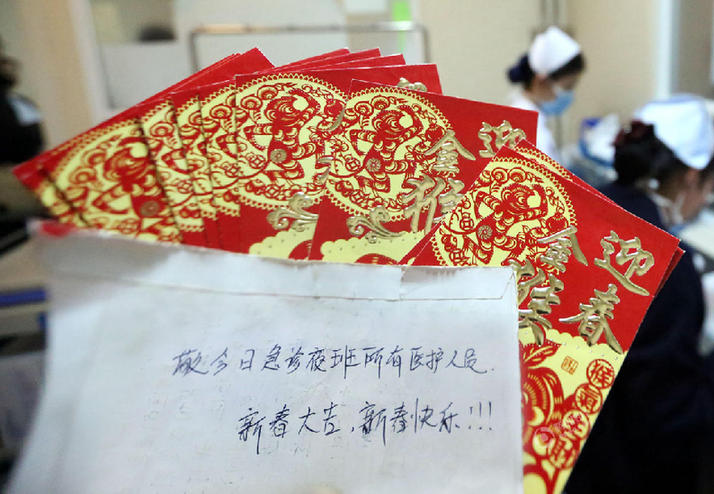 金猴
迎
金猴
迎春
敬今日急诊夜班所有医护人员.
新春大吉,新春快乐!!!